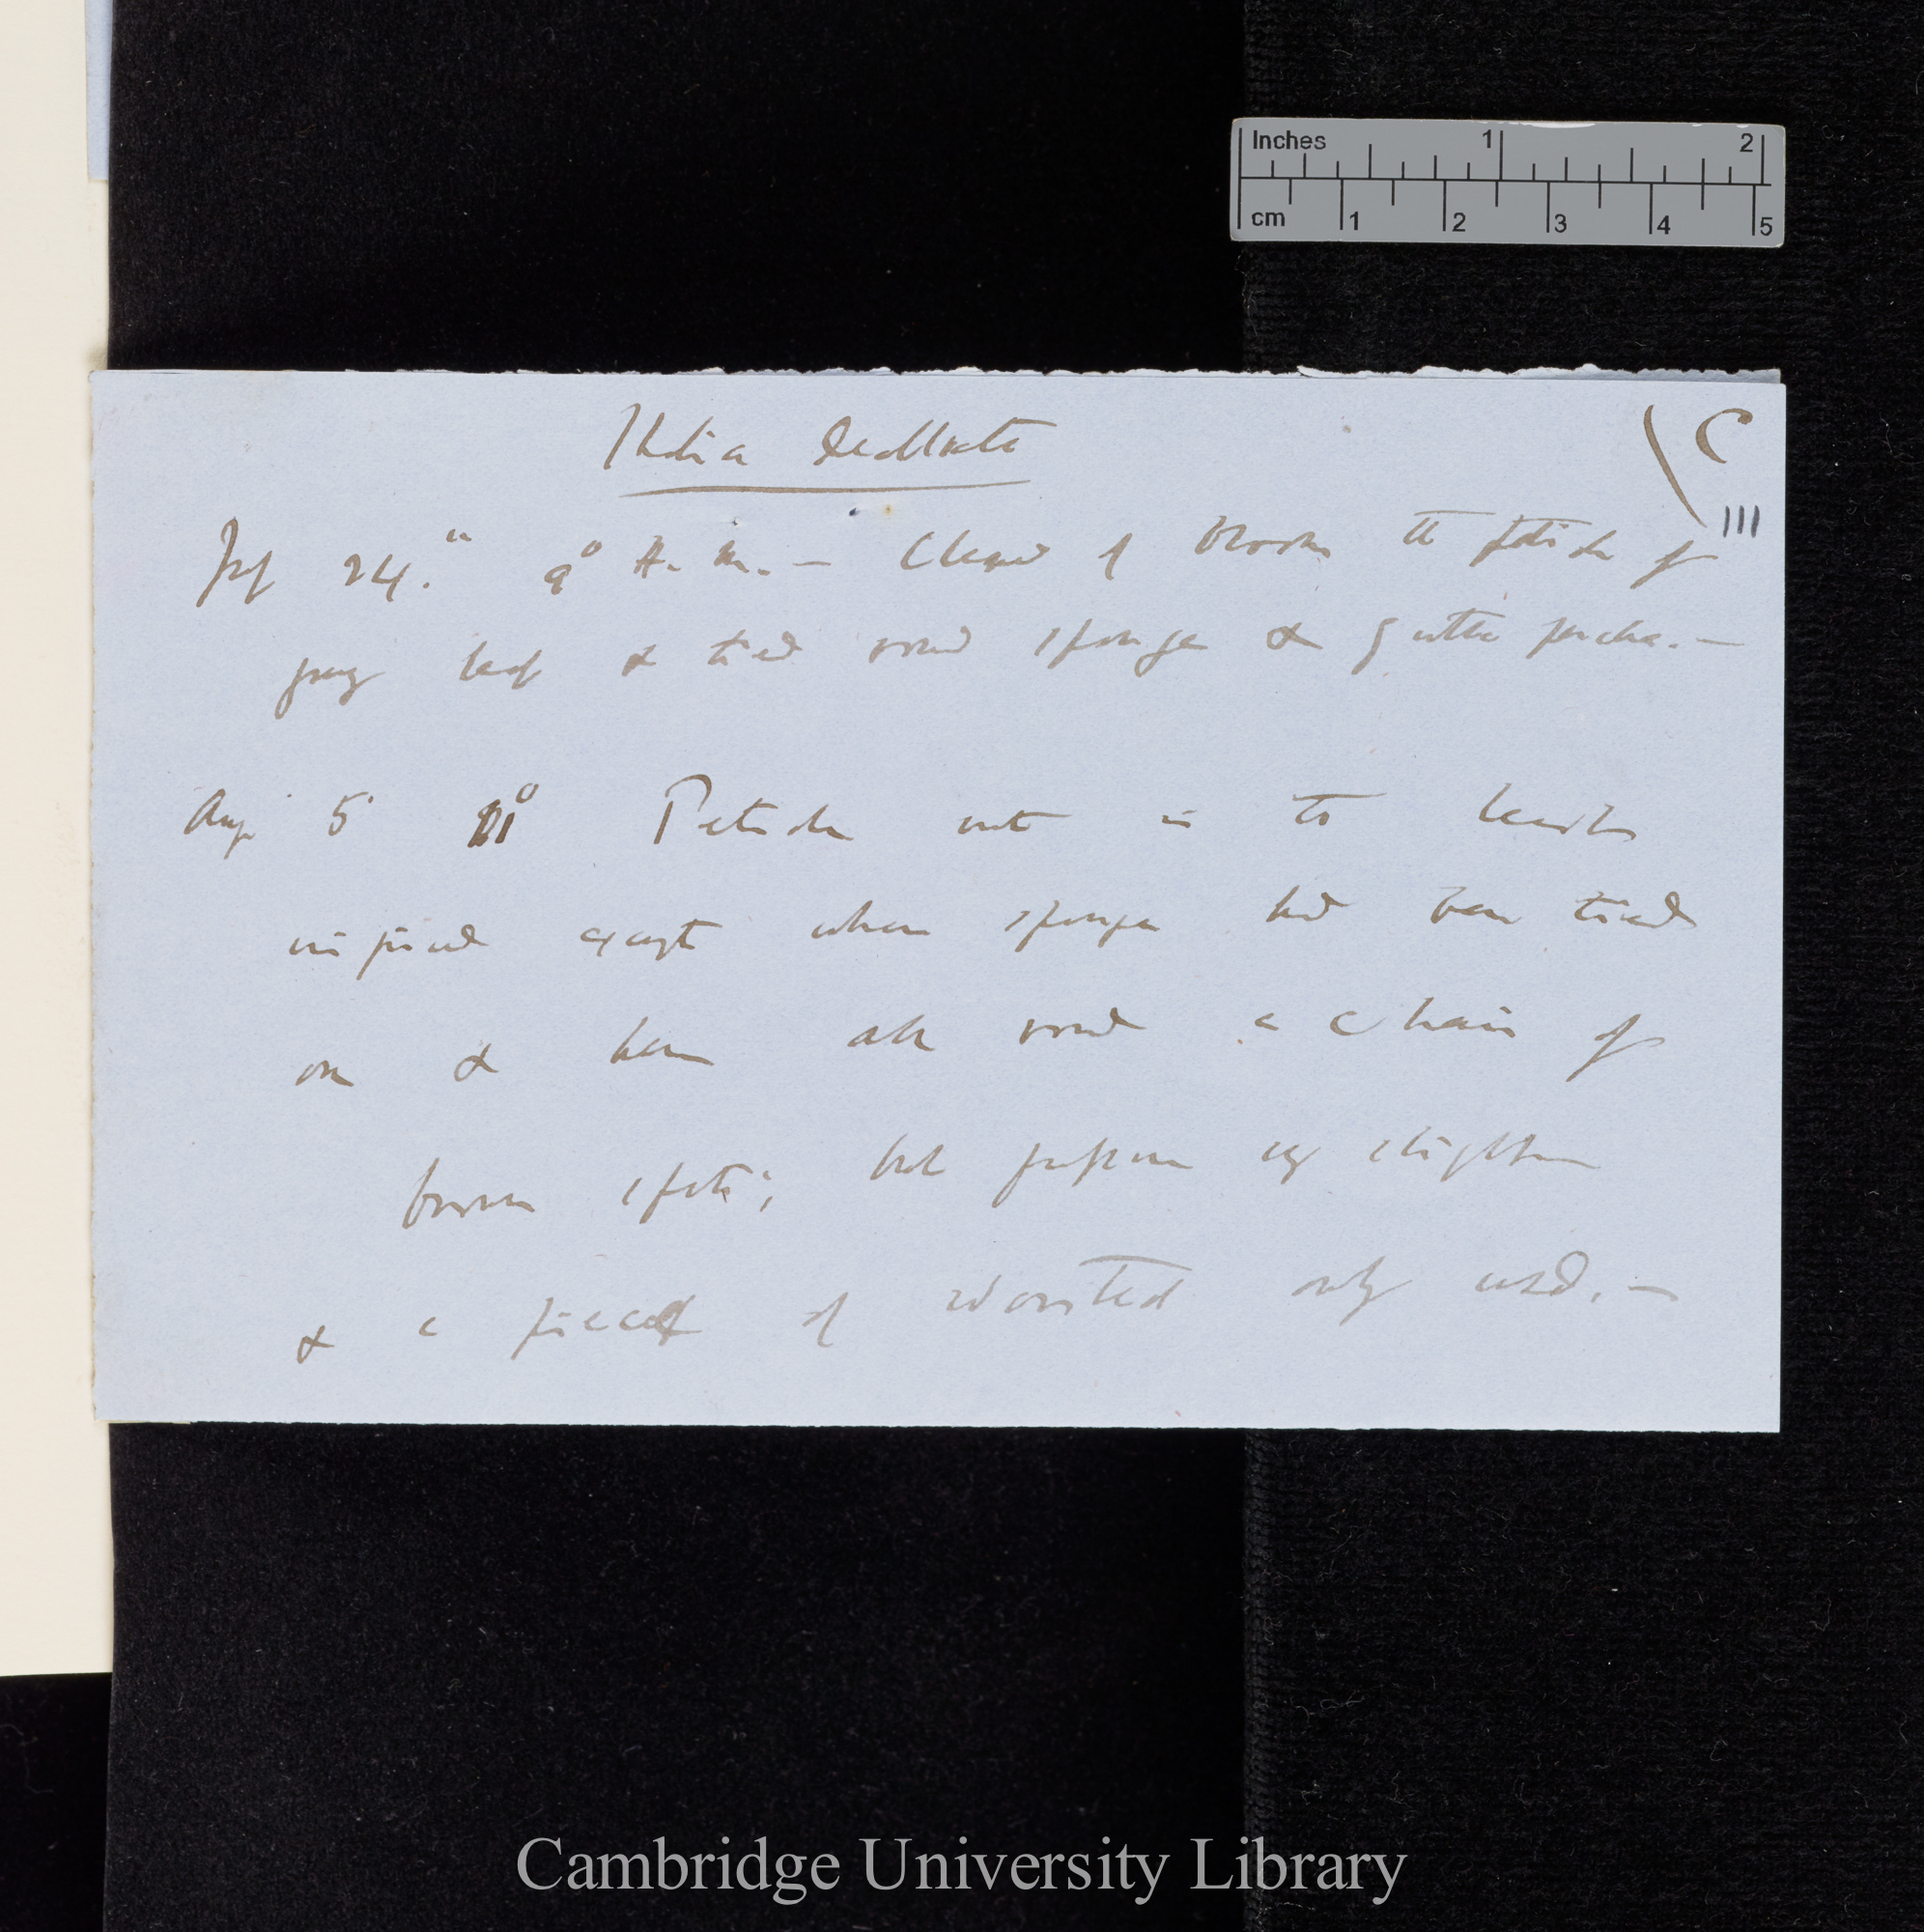 Inches 1 2
cm 1 2 3 4 5
C
111
July 24.th 9° A.M. — Cleaned of bloom the petiole of
young leaf & tied round sponge & gutta percha. —
Aug 5 11° Petiole not in the least
injured except where sponge had been tied
on & here all round a chain of
brown spots; but pressure very slight
& a piece of worsted only used. —
Cambridge University Library